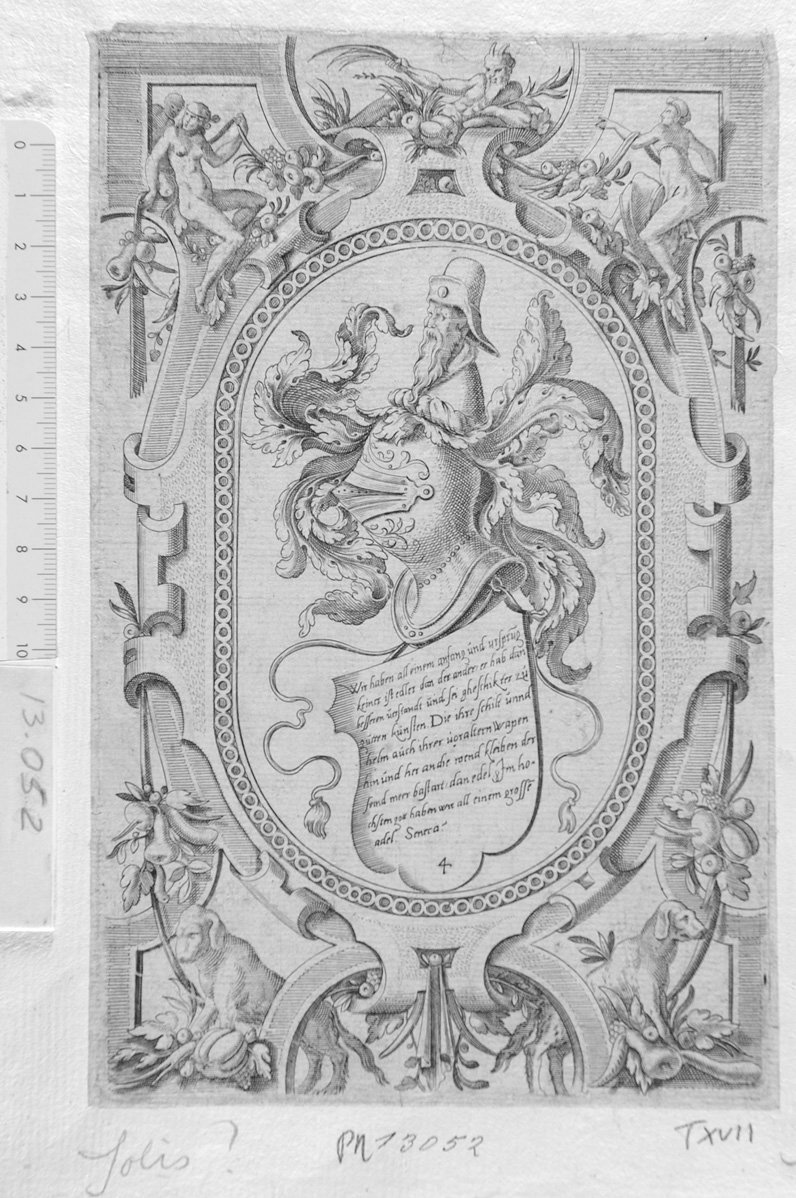 0
1
2
3
4
5
6
7
8
9
10
13.052
Wir haben all einem anfang und ursprūg
keiner ist edler dan der ander er hab dan
besseren verstandt und sei gheschikter zu
gutten künsten. Die ihre schilt unnd
helm auch ihrer uoraltern wapen
hin und her an die wend kleiben der
seind meer bastart dan edel. Im ho-
chsten zor haben wir all einem grosse
adel Seneca.
4
Solis?
PN 13052
TXVII